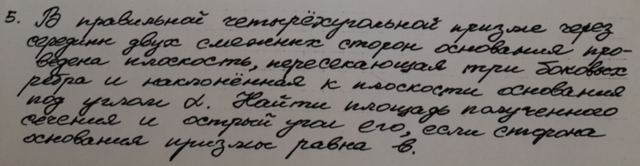 5. В правильной четырёхугольной призме через
середины двух смежных сторон основания про-
ведена плоскость, пересекающая три боковых
ребра и наклонённая к плоскости основания
под углом α. Найти площадь полученного
сечения и острый угол его, если сторона
основания призмы равна b.